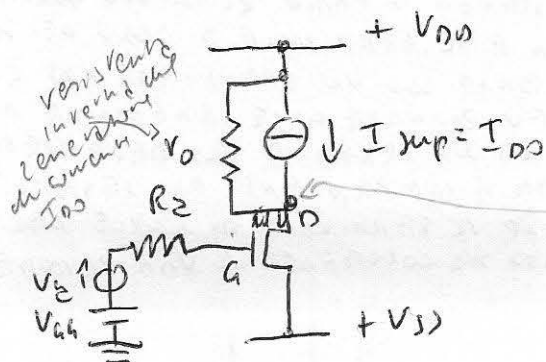 + VDD
resistenza
interna del
generatore
di corrente
IDO
r0
↓ I sup = IDO
D
RZ
G
VZ
VGG
+ VSS